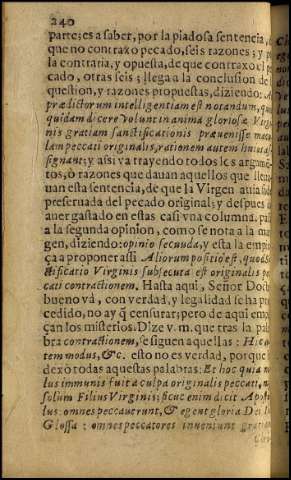 240
parte; es a saber, por la piadosa sentencia,
que no contraxo pecado, seis razones; y p
la contraria, y opuesta, de que contraxo el p
cado, otras seis; llega a la conclusion de l
question, y razones propuestas, diziendo: A
prædictorum intelligentiam est notandum, quo
quidam dicere volunt in anima gloriosæ Virgi
nis gratiam sanctificationis præuenisse macu
lam peccati originalis, rationem autem huius
signant; y assi va trayendo todos los argumẽ
tos, ò razones que dauan aquellos que lleua
uan esta sentencia, de que la Virgen auia sido
preseruada del pecado original; y despues d
auer gastado en estas casi vna columna, pa
a la segunda opinion, como se nota a la mar
gen, diziendo: opinio secunda, y esta la empie
ça a proponer assi Aliorum positio est, quod sã
ctificatio Virginis subsecuta est originalis pec
cati contractionem. Hasta aqui, Señor Doct
bueno và, con verdad, y legalidad se ha pro
cedido, no ay q̃ censurar; pero de aqui empie
çan los misterios. Dize v. m. que tras la pala
bra contractionem, se siguen aquellas: Hic au
tem modus, &c. esto no es verdad, porque
dexò todas aquestas palabras: Et hoc quia nul
lus immunis fuit a culpa originalis peccati, nisi
solum Filius Virginis; sicut enim dicit Aposto
lus: omnes peccauerunt, & egent gloria Dei.
Glossa: omnes peccatores inuenit gratia